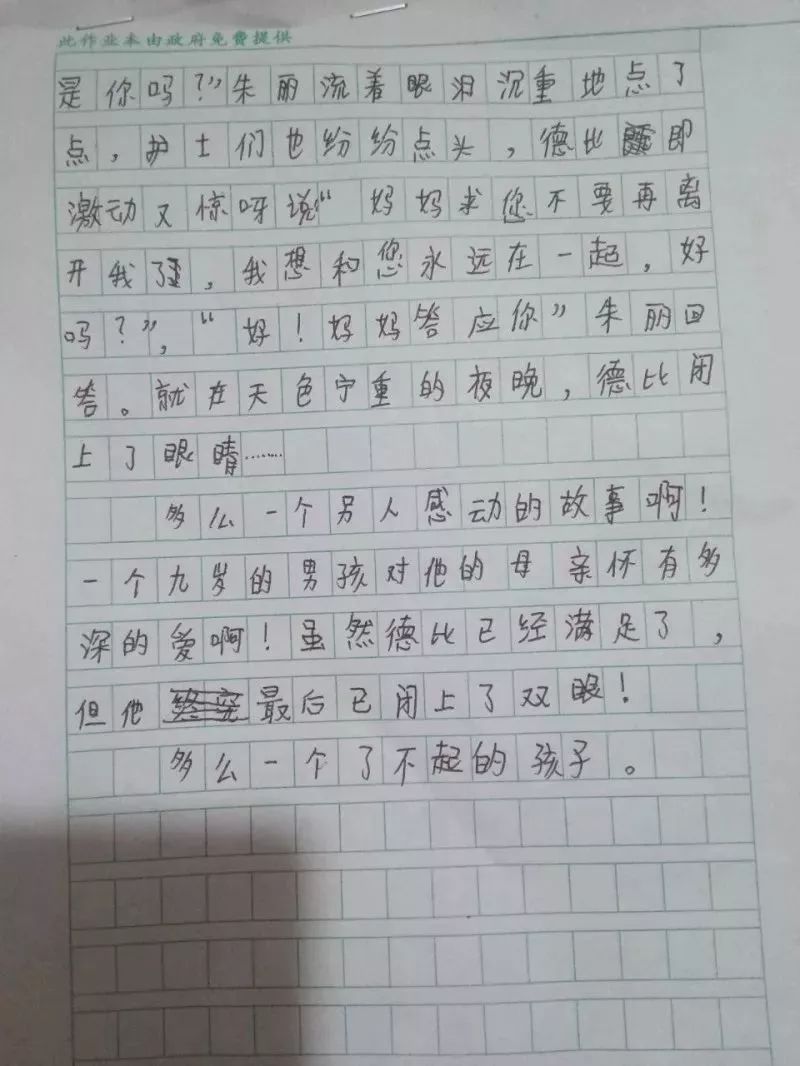 此作业本由政府免费提供
是你吗?”朱丽流着眼泪沉重地点了
点,护士们也纷纷点头,德比即
激动又惊呀说“妈妈求您不要再离
开我了,我想和您永远在一起,好
吗?”,“好!妈妈答应你”朱丽回
答。就在天色宁重的夜晚,德比闭
上了眼睛……
多么一个另人感动的故事啊!
一个九岁的男孩对他的母亲怀有多
深的爱啊!虽然德比已经满足了,
但他最后已闭上了双眼!
多么一个了不起的孩子。